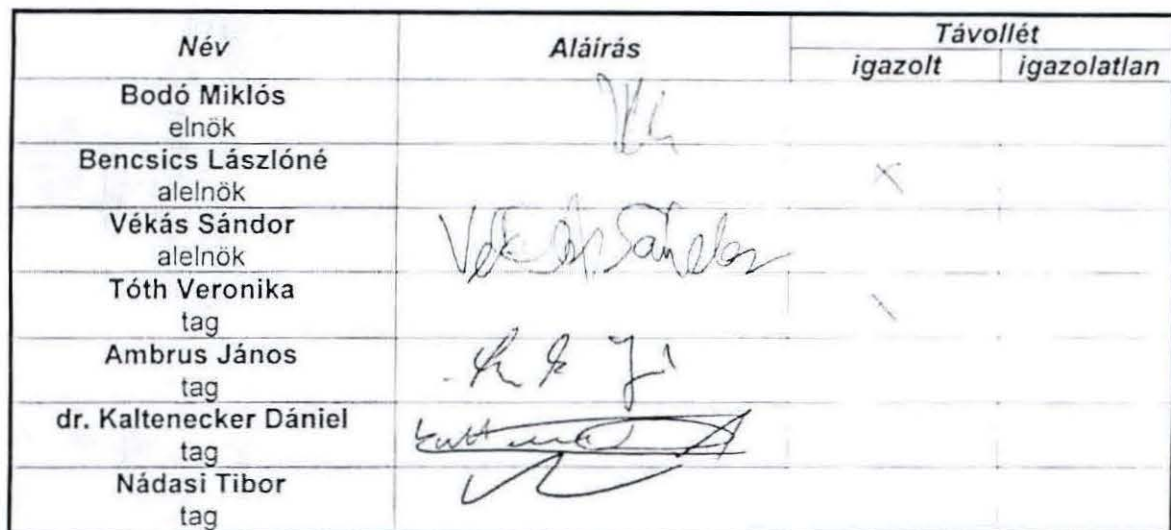 Név Aláírás Távollét
igazolt igazolatlan
Bodó Miklós
elnök
Bencsics Lászlóné
alelnök
Végás Sándor
alelnök
Tóth Veronika
tag
Ambrus János
tag
dr. Kaltenecker Dániel
tag
Nádasi Tibor
tag